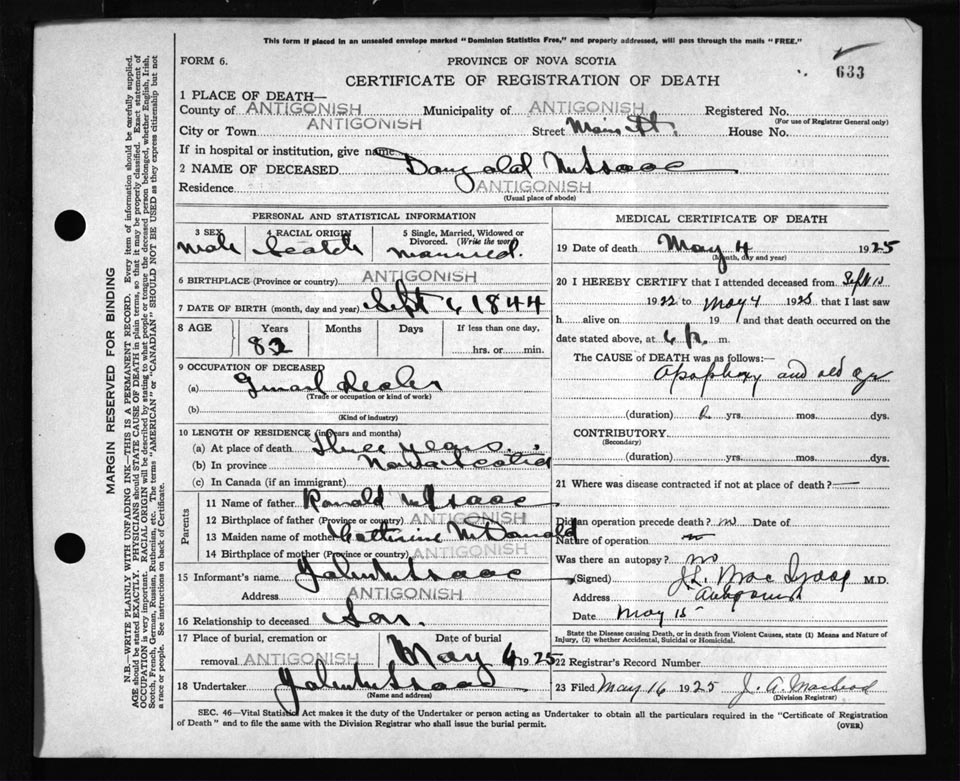 This form if placed in an unsealed envelope marked "Dominion Statistics Free," and properly addressed, will pass through the mails "FREE."
FORM 6.
PROVINCE OF NOVA SCOTIA
633
CERTIFICATE OF REGISTRATION OF DEATH
1 PLACE OF DEATH—
County of ANTIGONISH Municipality of ANTIGONISH Registered No.
(For use of Registrar General only)
City or Town ANTIGONISH Street Main St. House No.
If in hospital or institution, give name
2 NAME OF DECEASED Dougald McIsaac
Residence ANTIGONISH
(Usual place of abode)
PERSONAL AND STATISTICAL INFORMATION
3 SEX 4 RACIAL ORIGIN 5 Single, Married, Widowed or Divorced. (Write the word)
Male Scotch Married.
6 BIRTHPLACE (Province or country) ANTIGONISH
7 DATE OF BIRTH (month, day and year) Sept 1, 1844
8 AGE Years Months Days If less than one day,
82 hrs. or min.
9 OCCUPATION OF DECEASED
(a) dealer
(Trade or occupation or kind of work)
(b)
(Kind of industry)
10 LENGTH OF RESIDENCE (in years and months)
(a) At place of death Three years
(b) In province Nova Scotia
(c) In Canada (if an immigrant)
Parents
11 Name of father Ronald McIsaac
12 Birthplace of father (Province or country) ANTIGONISH
13 Maiden name of mother Catherine McDonald
14 Birthplace of mother (Province or country) ANTIGONISH
15 Informant's name John McIsaac
Address ANTIGONISH
16 Relationship to deceased Son.
17 Place of burial, cremation or removal ANTIGONISH Date of burial May 6 1925
18 Undertaker John McIsaac
(Name and address)
MEDICAL CERTIFICATE OF DEATH
19 Date of death May 4 1925
(Month, day and year)
20 I HEREBY CERTIFY that I attended deceased from Sept 10
1922 to May 4 1925 that I last saw
h alive on 19 and that death occurred on the
date stated above, at 6 p. m.
The CAUSE OF DEATH was as follows:
Apoplexy and old age
(duration) 2 yrs. mos. dys.
CONTRIBUTORY
(Secondary)
(duration) yrs. mos. dys.
21 Where was disease contracted if not at place of death? —
Did an operation precede death? no Date of
Nature of operation
Was there an autopsy? no
(Signed) J.L. MacIsaac M.D.
Address Antigonish
Date May 15
State the Disease causing Death, or in death from Violent Causes, state (1) Means and Nature of Injury, (2) whether Accidental, Suicidal or Homicidal.
22 Registrar's Record Number
23 Filed May 16 1925 J. A. Macleod
(Division Registrar)
SEC. 46—Vital Statistics Act makes it the duty of the Undertaker or person acting as Undertaker to obtain all the particulars required in the "Certificate of Registration
of Death" and to file the same with the Division Registrar who shall issue the burial permit.
(OVER)
MARGIN RESERVED FOR BINDING
N.B.—WRITE PLAINLY WITH UNFADING INK—THIS IS A PERMANENT RECORD. Every item of information should be carefully supplied.
AGE should be stated EXACTLY. PHYSICIANS should STATE CAUSE OF DEATH in plain terms, so that it may be properly classified. Exact statement of
OCCUPATION is very important. RACIAL ORIGIN will be described by stating to what people or tongue the deceased person belonged, whether English, Irish,
Scotch, French, German, Russian, Ruthenian, etc. The terms "AMERICAN" or "CANADIAN" SHOULD NOT BE USED as they express citizenship but not
a race or people. See instructions on back of Certificate.